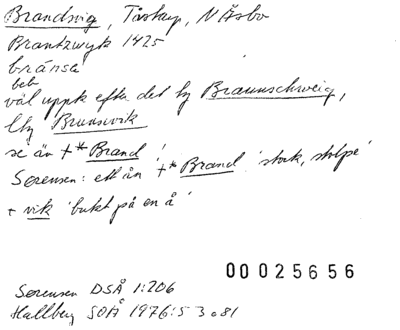 Brandsvig, Tåstarp, N Åsbo
Brantzwyk 1425
brá̀nsa
beb
väl uppk efter det ty Braunschweig,
lty Brunsvik
se än †* Brand!
Sørensen: ett ån †* Brand 'stock, stolpe'
+ vik 'bukt på en å'
00025656
Sørensen DSÅ 1:206
Hallberg SOÅ 1976:s 3 o 81